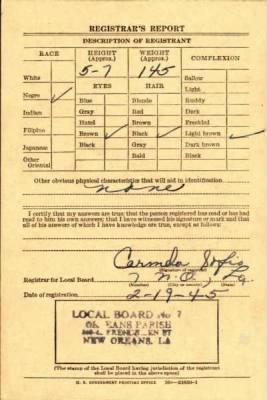 REGISTRAR'S REPORT
DESCRIPTION OF REGISTRANT
RACE HEIGHT (Approx.) WEIGHT (Approx.) COMPLEXION
5-7 145
White Sallow
EYES HAIR Light
Negro ✓ Blue Blonde Ruddy
Indian Gray Red Dark
Hazel Brown Freckled
Filipino Brown ✓ Black ✓ Light brown ✓
Japanese Black Gray Dark brown
Other Oriental Bald Black
Other obvious physical characteristics that will aid in identification
none
I certify that my answers are true; that the person registered has read or has had
read to him his own answers; that I have witnessed his signature or mark and that
all of his answers of which I have knowledge are true, except as follows:
Carmela
(Signature of registrar)
Registrar for Local Board 7 N.O., La
(Number) (City or county) (State)
Date of registration 2-19-45
LOCAL BOARD No 7
ORLEANS PARISH
NEW ORLEANS, LA
(The stamp of the Local Board having jurisdiction of the registrant
shall be placed in the above space)
U. S. GOVERNMENT PRINTING OFFICE